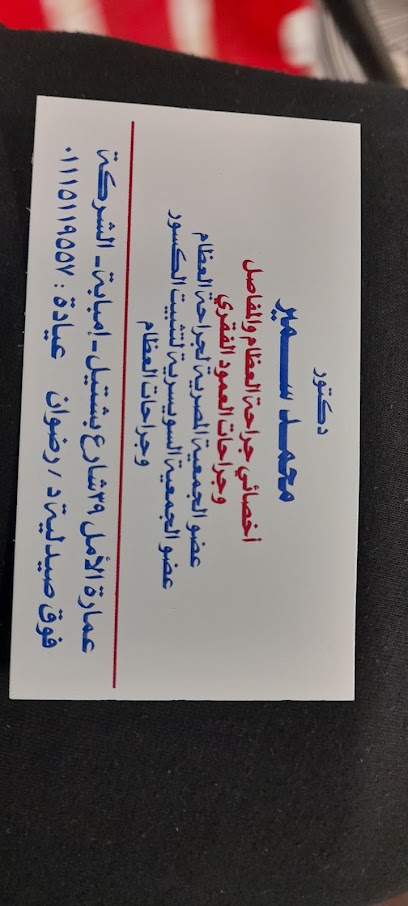 دكتور
محمد سمير
أخصائي جراحة العظام والمفاصل
وجراحات العمود الفقري
عضو الجمعية المصرية لجراحة العظام
عضو الجمعية السويسرية لتثبيت الكسور
وجراحات العظام
عمارة الأمل ٣٩ شارع بشتيل - إمبابة - الشركة
فوق صيدلية د / رضوان عيادة : ٠١١١٥١١٩٥٥٧